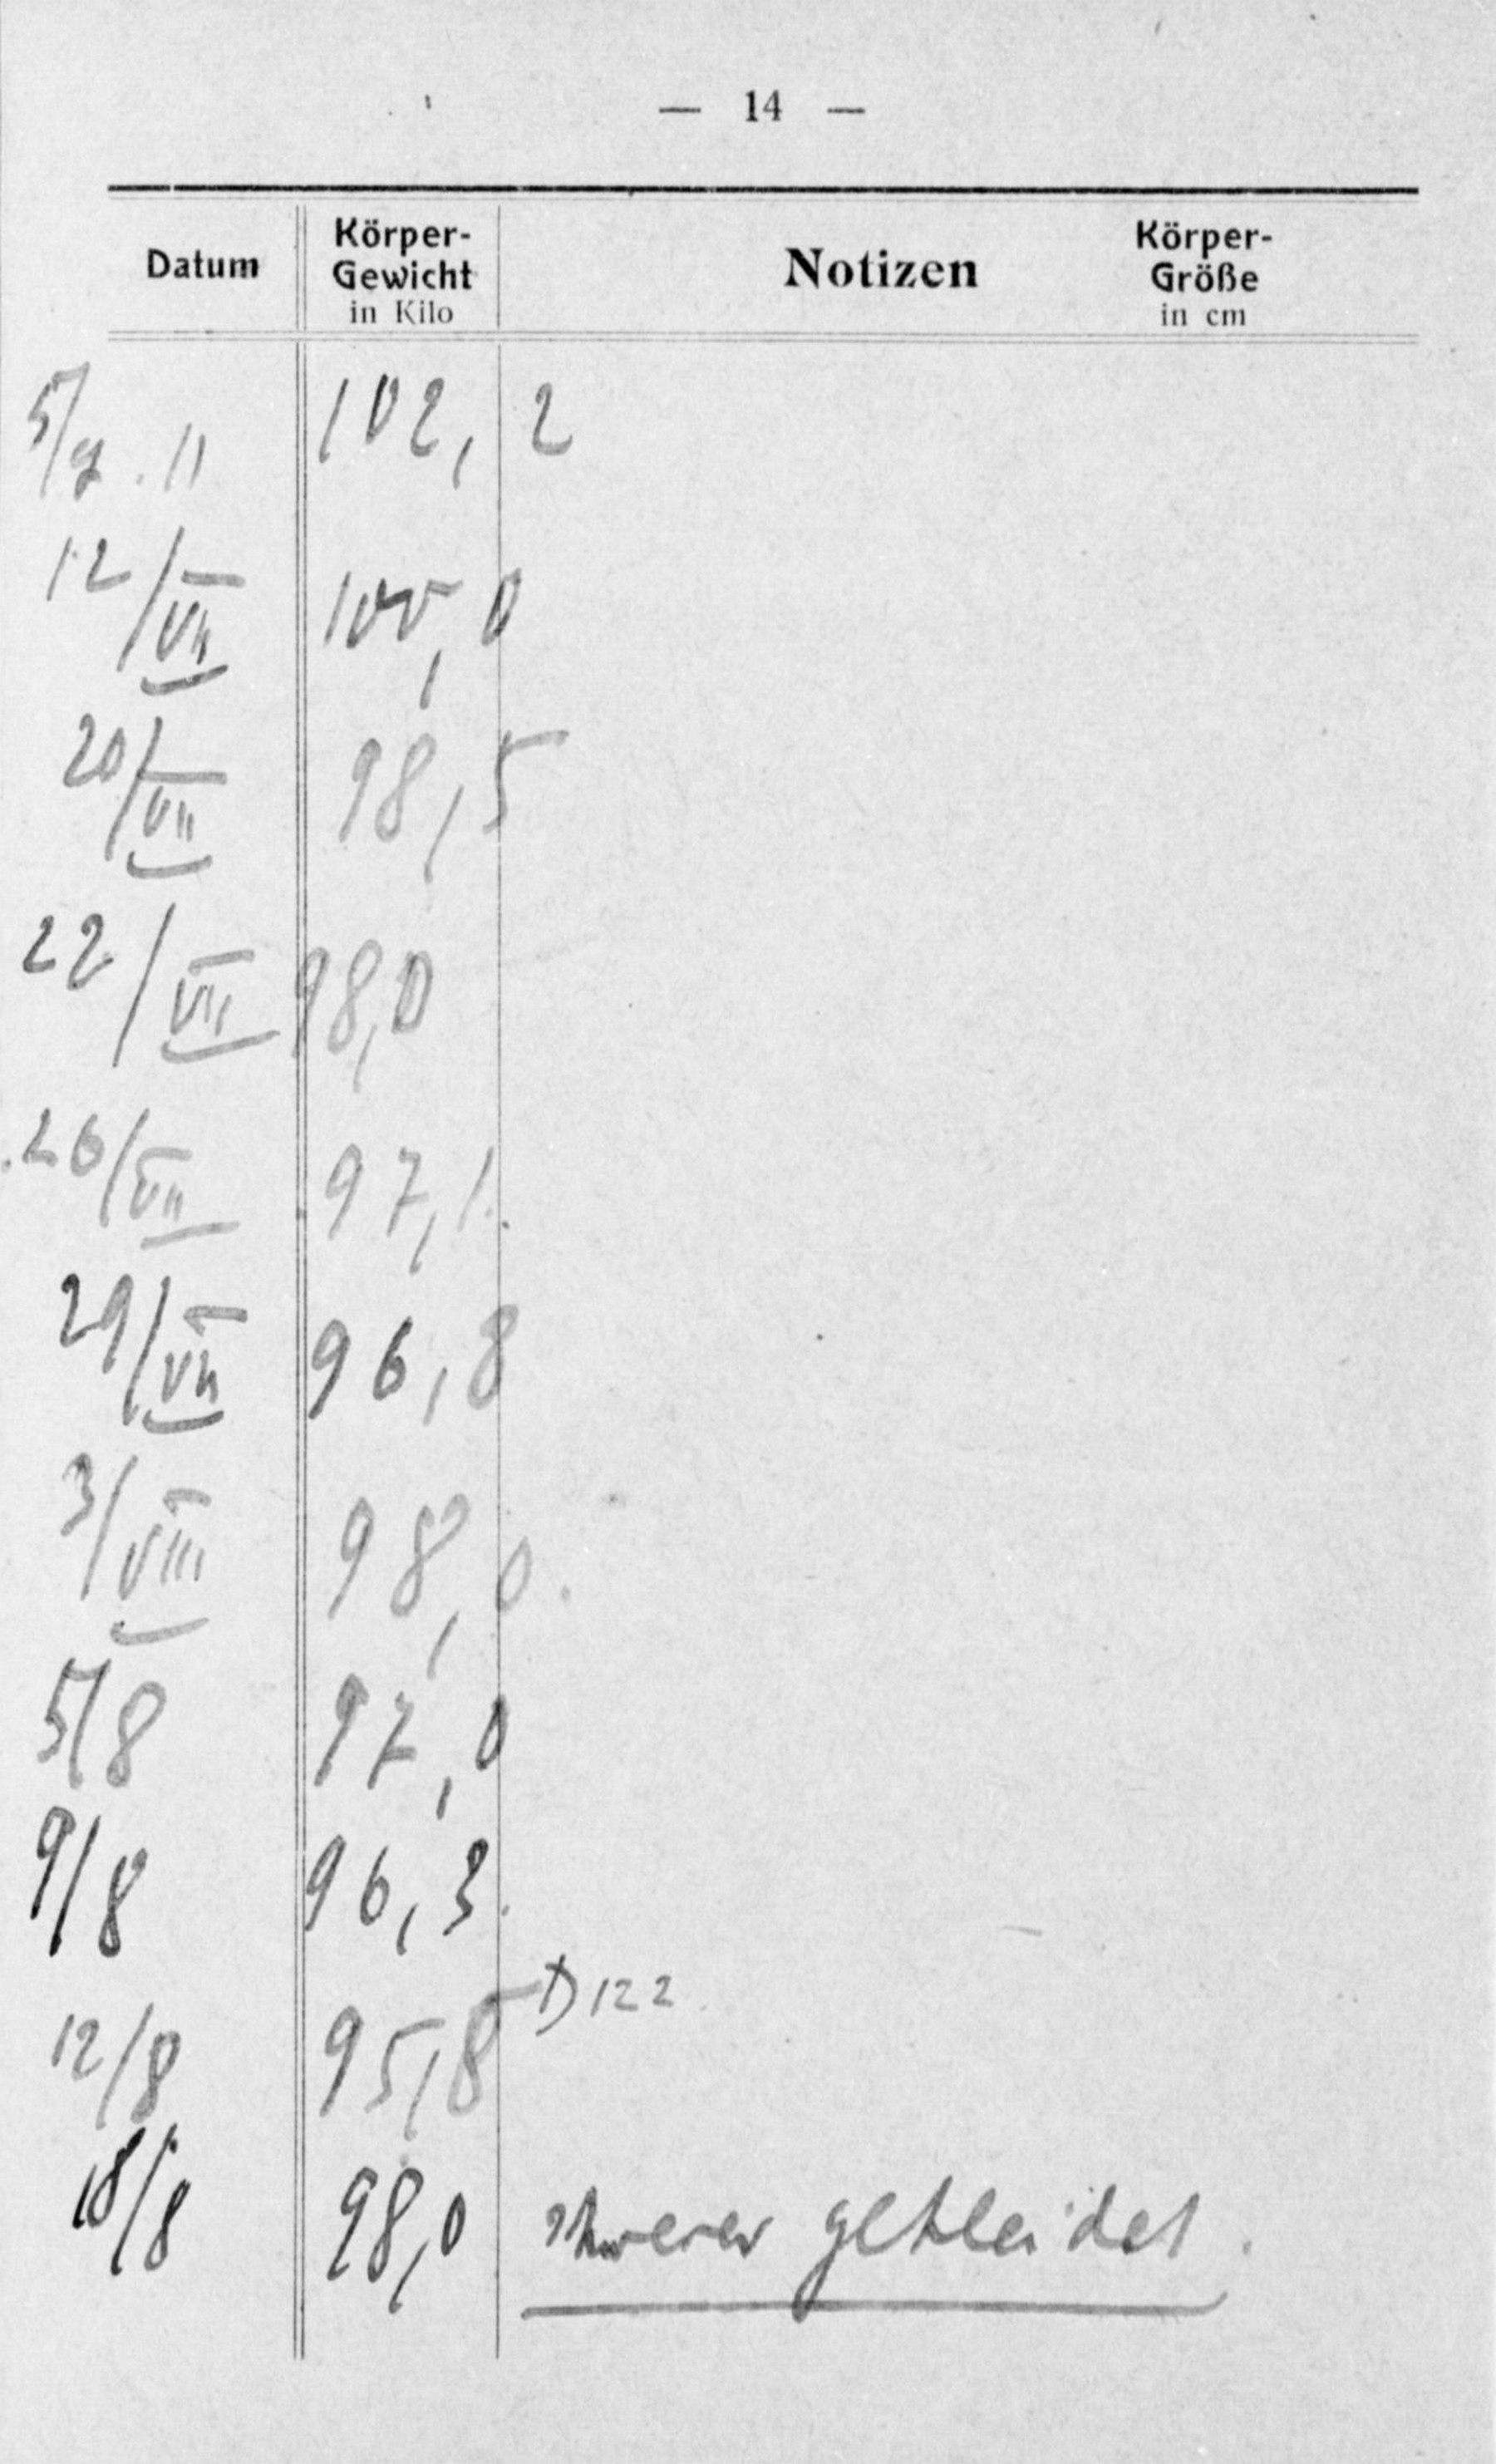 — 14 —
Datum Körper- Gewicht in Kilo Notizen Körper- Größe in cm
5/7. 11 102, 2
12/VII 100, 0
20/VII 98,5
22/VII 98,0
26/VII 97,1.
29/VII 96,8
3/VIII 98,0.
5/8 97,0
9/8 96,3.
12/8 95,8 D 122
18/8 98,0 schwerer gekleidet.